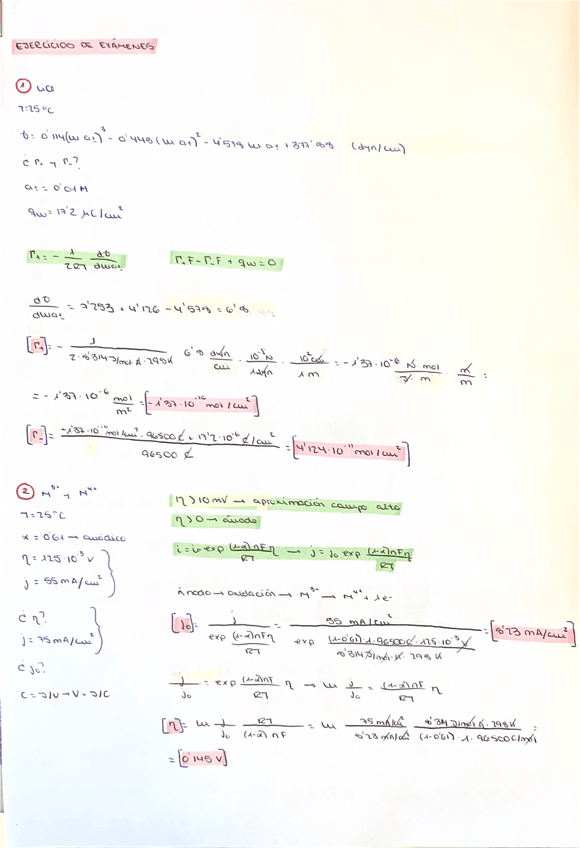 EJERCICIO DE EXÁMENES
① LiCl
T=25ºC
σ= 0'114(ln a±)³ - 0'448(ln a±)² - 4'578 ln a± + 377'88 (dyn/cm)
¿ Γ+ y Γ-?
a± = 0'01M
qw= 17'2 μC/cm²
Γ+= - 1/2RT dσ/dlna± Γ+F-Γ-F + qw=0
dσ/dlna± = 7'253 + 4'126 - 4'578 = 6'8
[Γ+]= - 1/2·8'314 J/mol·K·298K 6'8 dyn/cm · 10⁻⁵N/1dyn · 10²cm/1m = -1'37·10⁻⁶ N·mol/J·m · m/m =
= -1'37·10⁻⁶ mol/m² = [-1'37·10⁻¹⁰ mol/cm²]
[Γ-]= -1'37·10⁻¹⁰ mol/cm² · 96500 C + 17'2·10⁻⁶ C/cm² / 96500 C = [4'124·10⁻¹¹ mol/cm²]
② M³⁺ → M⁴⁺
T=25ºC
α = 0'61 → anódico
η = 125·10⁻³ V
j = 55 mA/cm²
¿ η?
j = 75 mA/cm²
¿ j₀?
C = J/V → V = J/C
η > 10 mV → aproximación campo alto
η > 0 → ánodo
i = i₀ exp (1-α)nFη/RT → j = j₀ exp (1-α)nFη/RT
Ánodo → oxidación → M³⁺ → M⁴⁺ + 1e⁻
[j₀]= j/exp (1-α)nFη/RT = 55 mA/cm²/exp (1-0'61)·1·96500C·125·10⁻³V/8'314 J/mol·K·298K = [8'23 mA/cm²]
j/j₀ = exp (1-α)nF/RT η → ln j/j₀ = (1-α)nF/RT η
[η]= ln j/j₀ RT/(1-α)nF = ln 75 mA/cm²/8'23 mA/cm² 8'314 J/mol·K·298K/(1-0'61)·1·96500C/mol =
= [0'145 V]